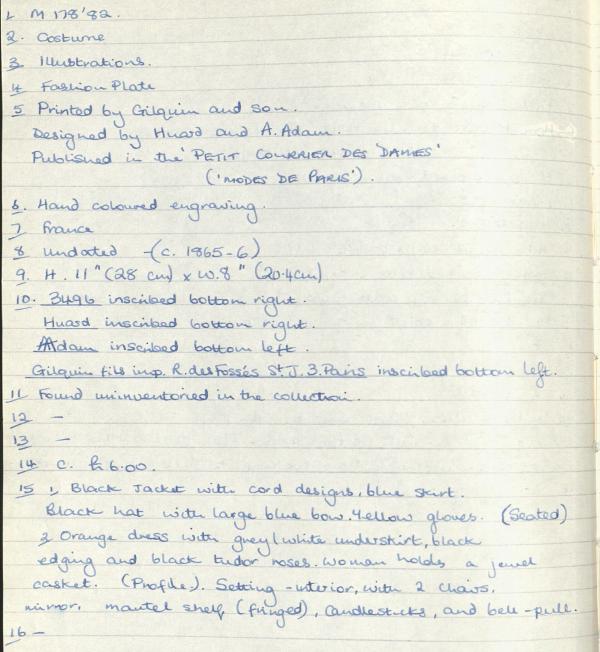 1. M 178'82.
2. Costume
3 Illustrations.
4 Fashion Plate
5 Printed by Gilquin and son.
Designed by Huard and A. Adam.
Published in the 'PETIT COURRIER DES DAMES'
('MODES DE PARIS').
6. Hand coloured engraving.
7 France
8 undated - (c. 1865-6)
9. H. 11" (28 cm) x W. 8" (20.4cm)
10. 3496 inscribed bottom right.
Huard inscribed bottom right.
AAdam inscribed bottom left.
Gilquin fils imp. R. des Fossés St. J. 3. Paris inscribed bottom left.
11 Found uninventoried in the collection.
12 -
13 -
14 c. 6.00.
15 1, Black Jacket with cord designs, blue skirt.
Black hat with large blue bow. Yellow gloves. (Seated)
2 Orange dress with grey/white underskirt, black
edging and black tudor roses. Woman holds a jewel
casket. (Profile). Setting - interior, with 2 chairs,
mirror, mantel shelf (fringed), candlesticks, and bell-pull.
16 -